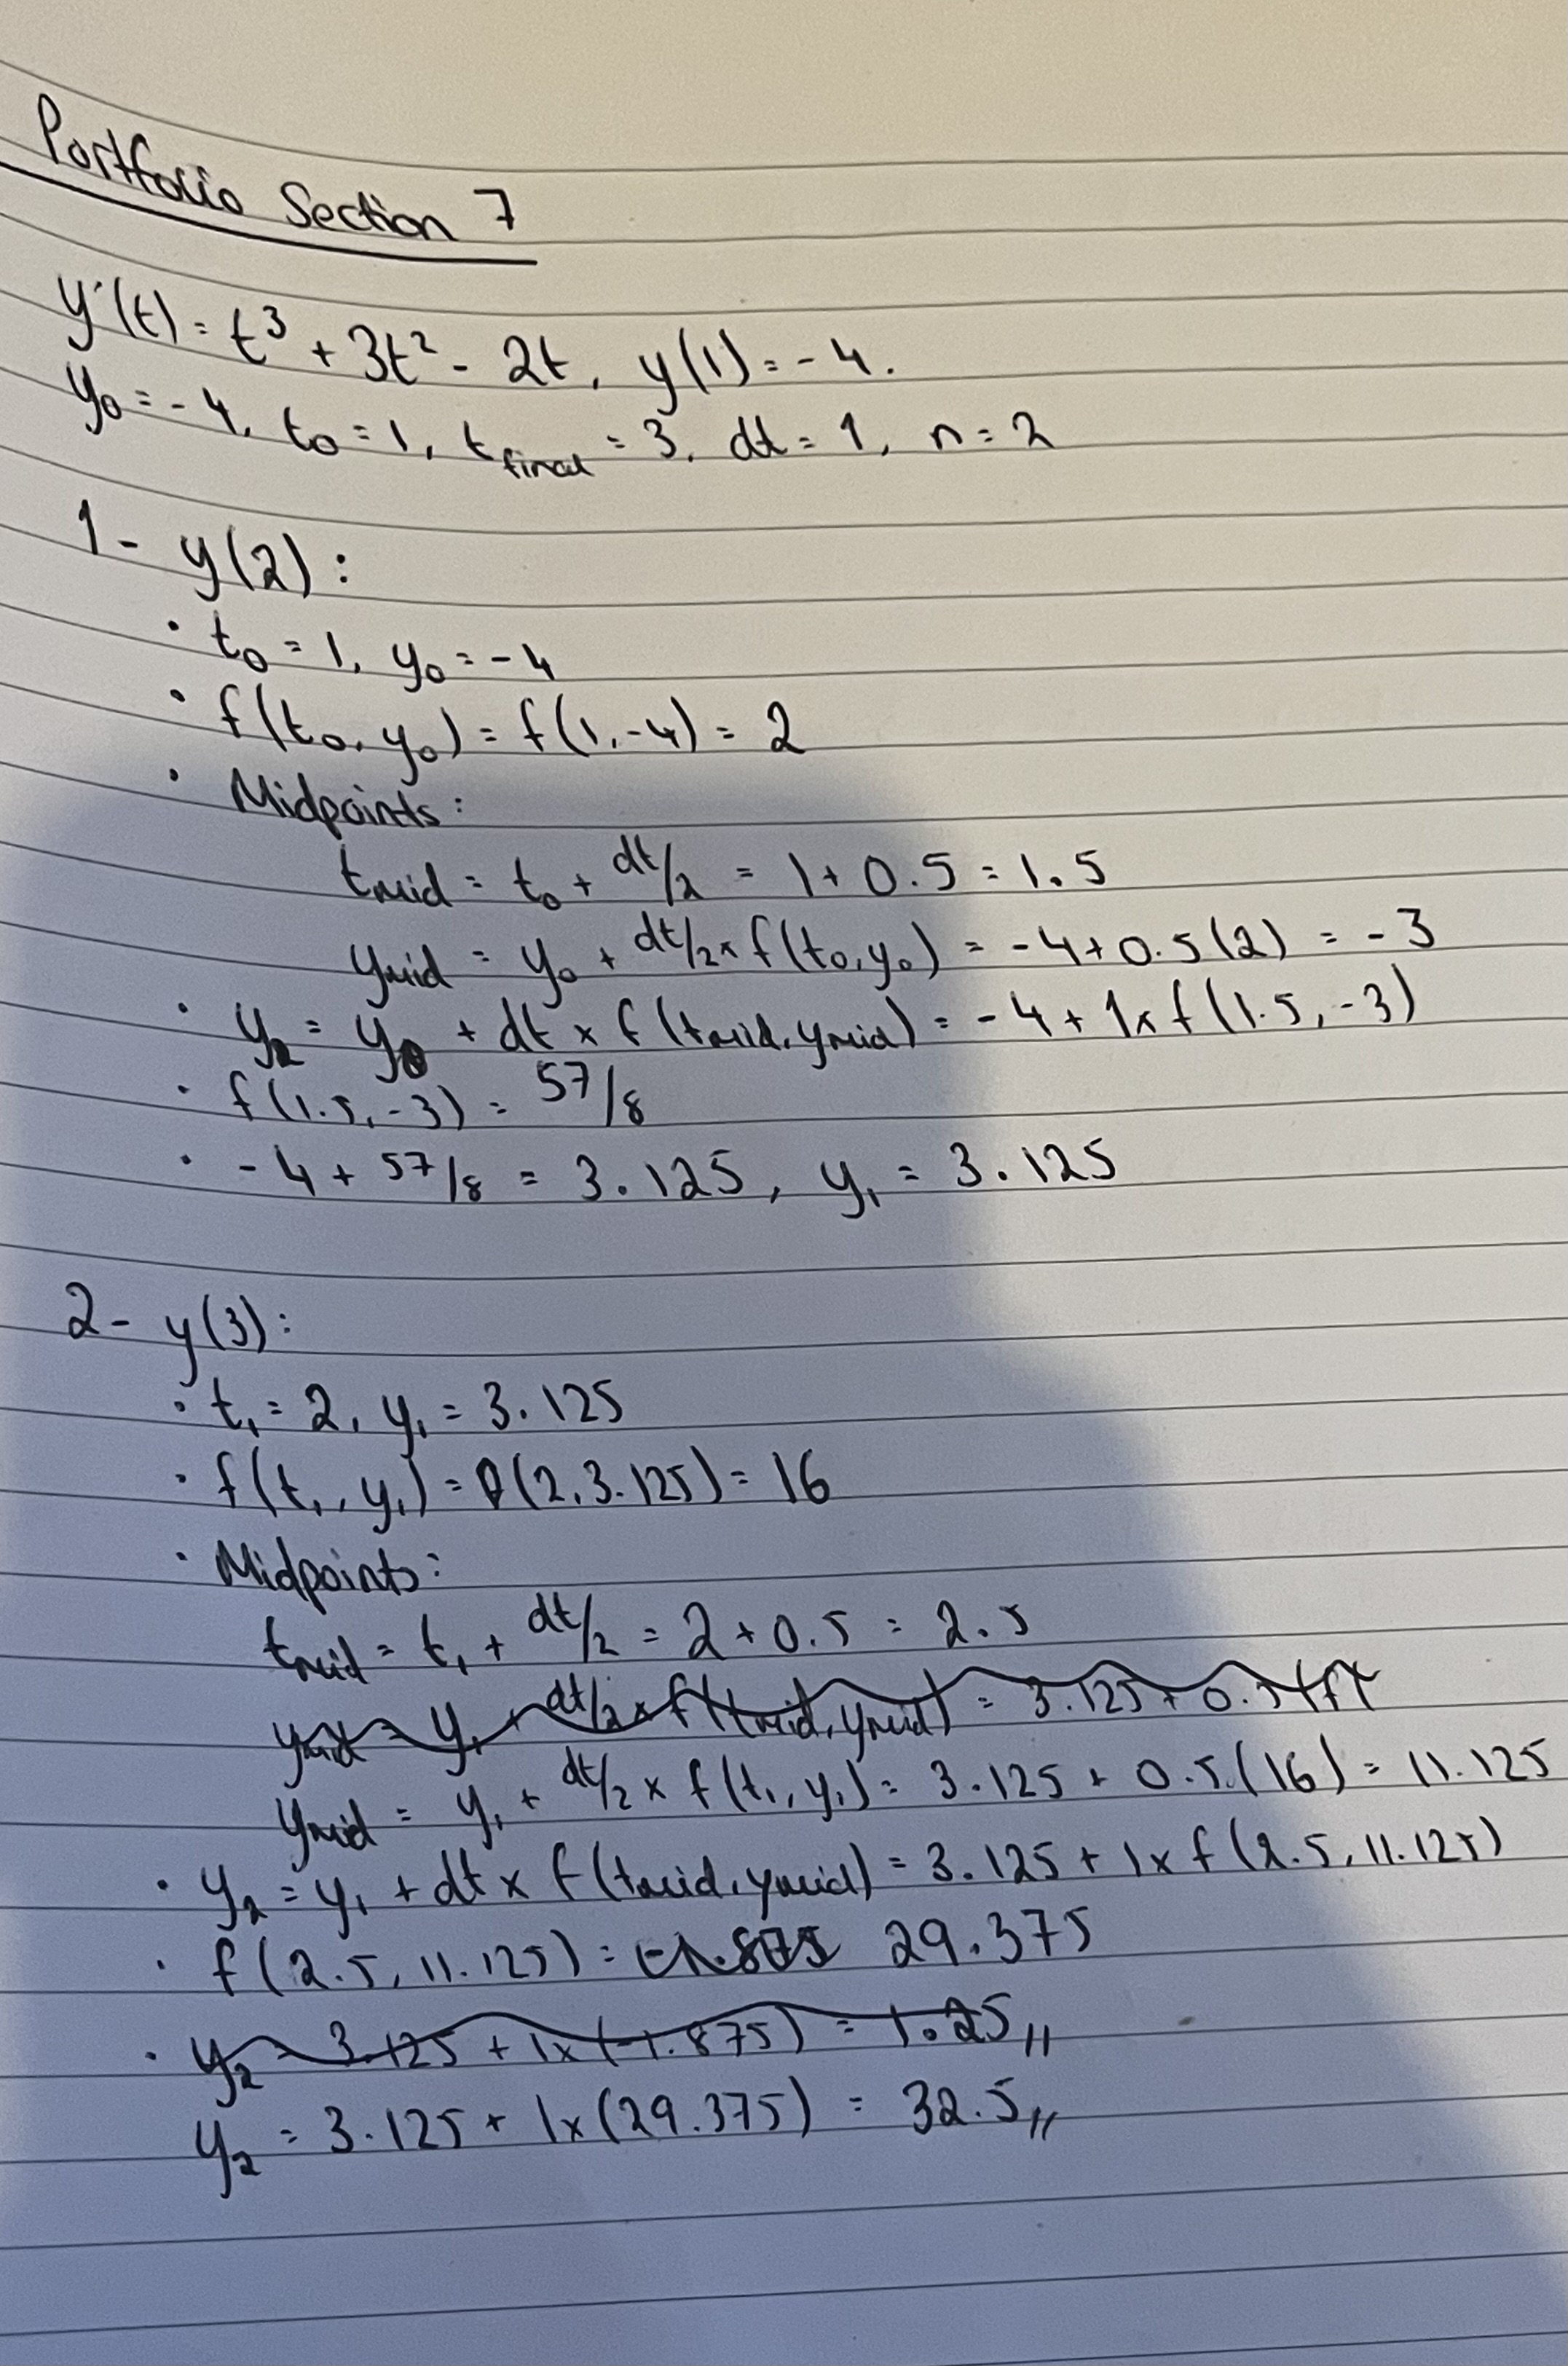 Portfolio Section 7
y'(t) = t³ + 3t² - 2t, y(1) = -4.
y₀ = -4, t₀ = 1, t_final = 3, dt = 1, n = 2
1 - y(2) :
• t₀ = 1, y₀ = -4
• f(t₀, y₀) = f(1, -4) = 2
• Midpoints :
tmid = t₀ + dt/2 = 1 + 0.5 = 1.5
ymid = y₀ + dt/2 × f(t₀, y₀) = -4 + 0.5(2) = -3
• y₂ = y₀ + dt × f(tmid, ymid) = -4 + 1 × f(1.5, -3)
• f(1.5, -3) = 57/8
• -4 + 57/8 = 3.125, y₁ = 3.125
2 - y(3) :
• t₁ = 2, y₁ = 3.125
• f(t₁, y₁) = f(2, 3.125) = 16
• Midpoints :
tmid = t₁ + dt/2 = 2 + 0.5 = 2.5
ymid = y₁ + dt/2 × f(tmid, ymid) = 3.125 + 0.5
ymid = y₁ + dt/2 × f(t₁, y₁) = 3.125 + 0.5(16) = 11.125
• y₂ = y₁ + dt × f(tmid, ymid) = 3.125 + 1 × f(2.5, 11.125)
• f(2.5, 11.125) = 29.375
• y₂ = 3.125 + 1 × (-1.875) = 1.25 //
y₂ = 3.125 + 1 × (29.375) = 32.5 //